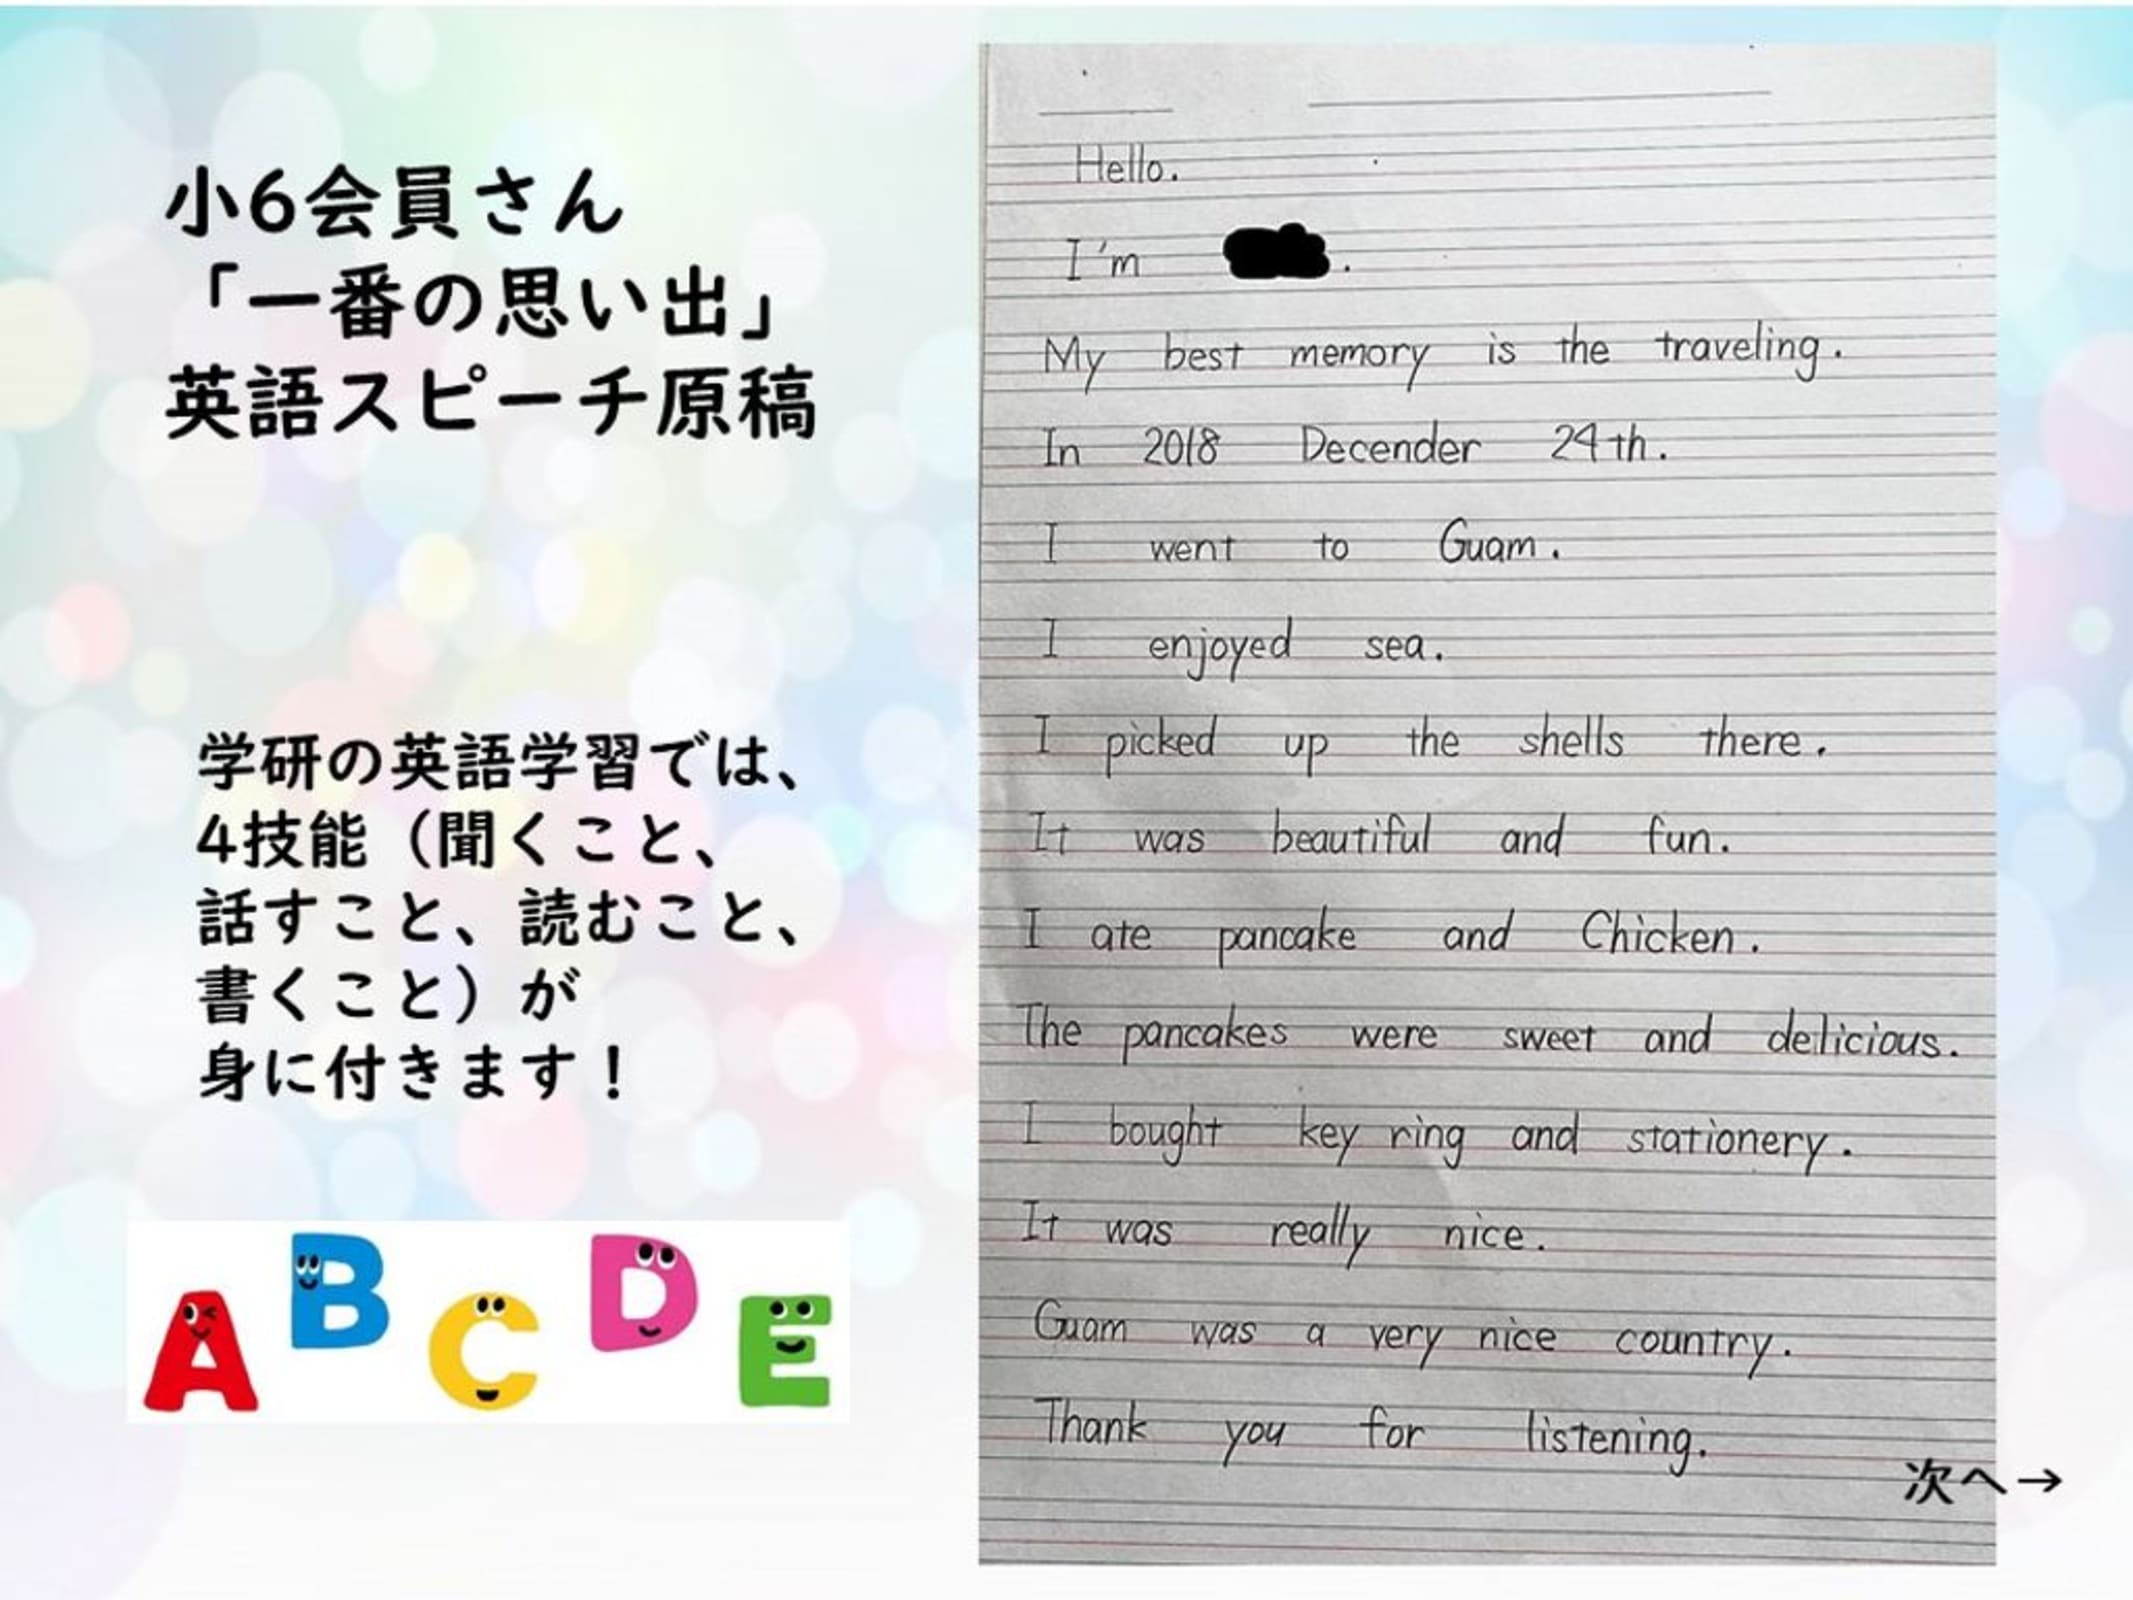 小6会員さん
「一番の思い出」
英語スピーチ原稿
学研の英語学習では、
4技能（聞くこと、
話すこと、読むこと、
書くこと）が
身に付きます！
A B C D E
Hello.
I'm .
My best memory is the traveling.
In 2018 Decender 24th.
I went to Guam.
I enjoyed sea.
I picked up the shells there.
It was beautiful and fun.
I ate pancake and Chicken.
The pancakes were sweet and delicious.
I bought key ring and stationery.
It was really nice.
Guam was a very nice country.
Thank you for listening.
次へ→